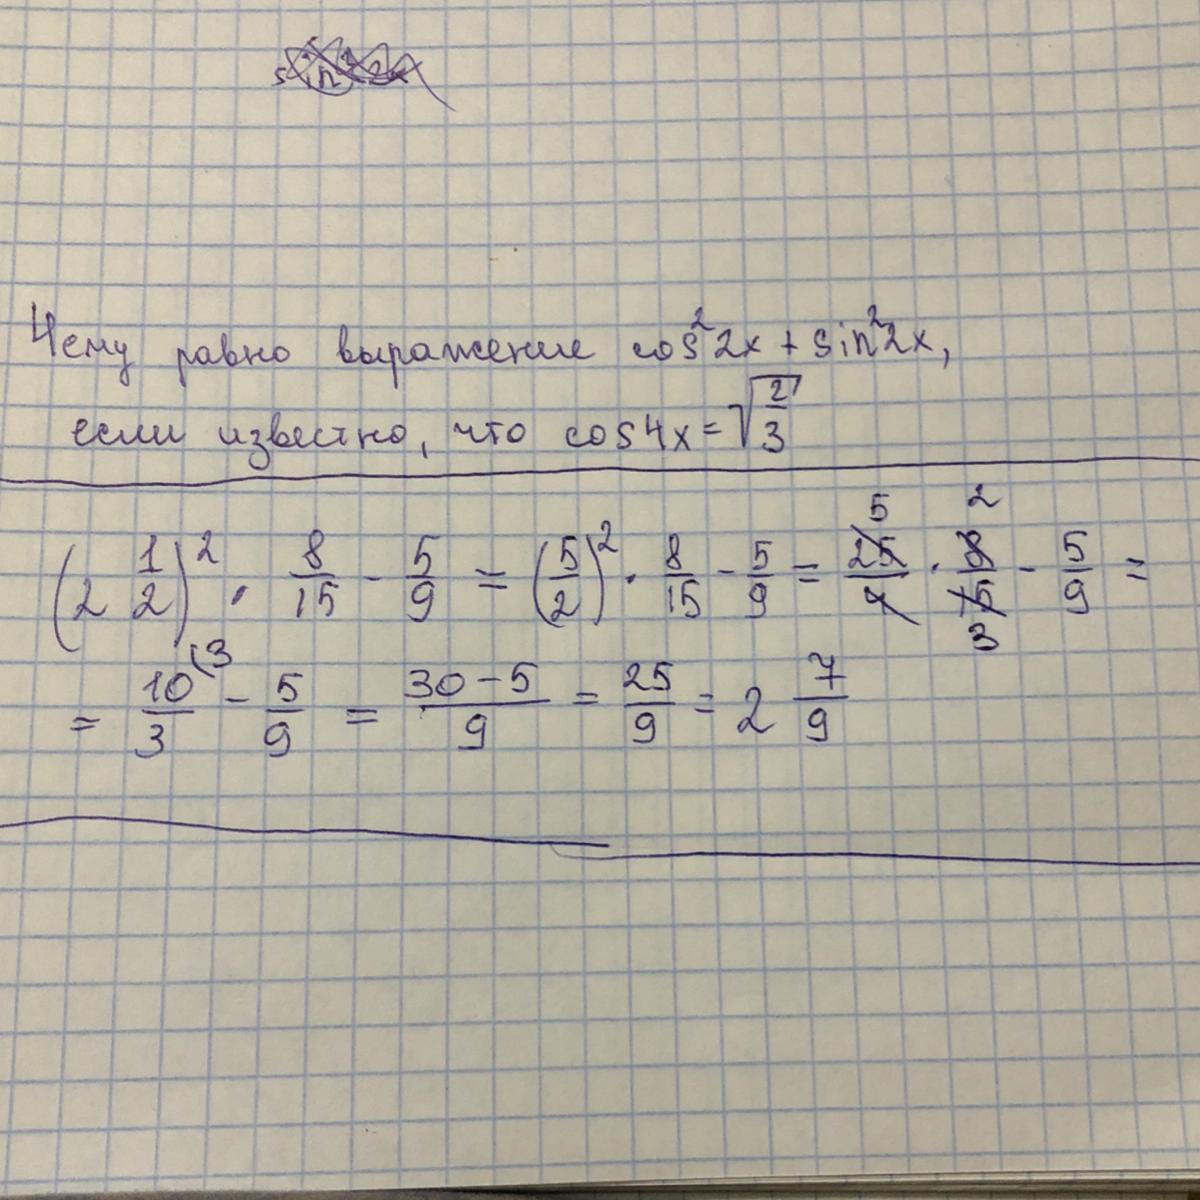 Чему равно выражение cos²2x + sin²2x,
если известно, что cos4x = √(2/3)
(2 1/2)² · 8/15 - 5/9 = (5/2)² · 8/15 - 5/9 = 25/4 · 8/15 - 5/9 =
= 10/3 - 5/9 = (30 - 5)/9 = 25/9 = 2 7/9